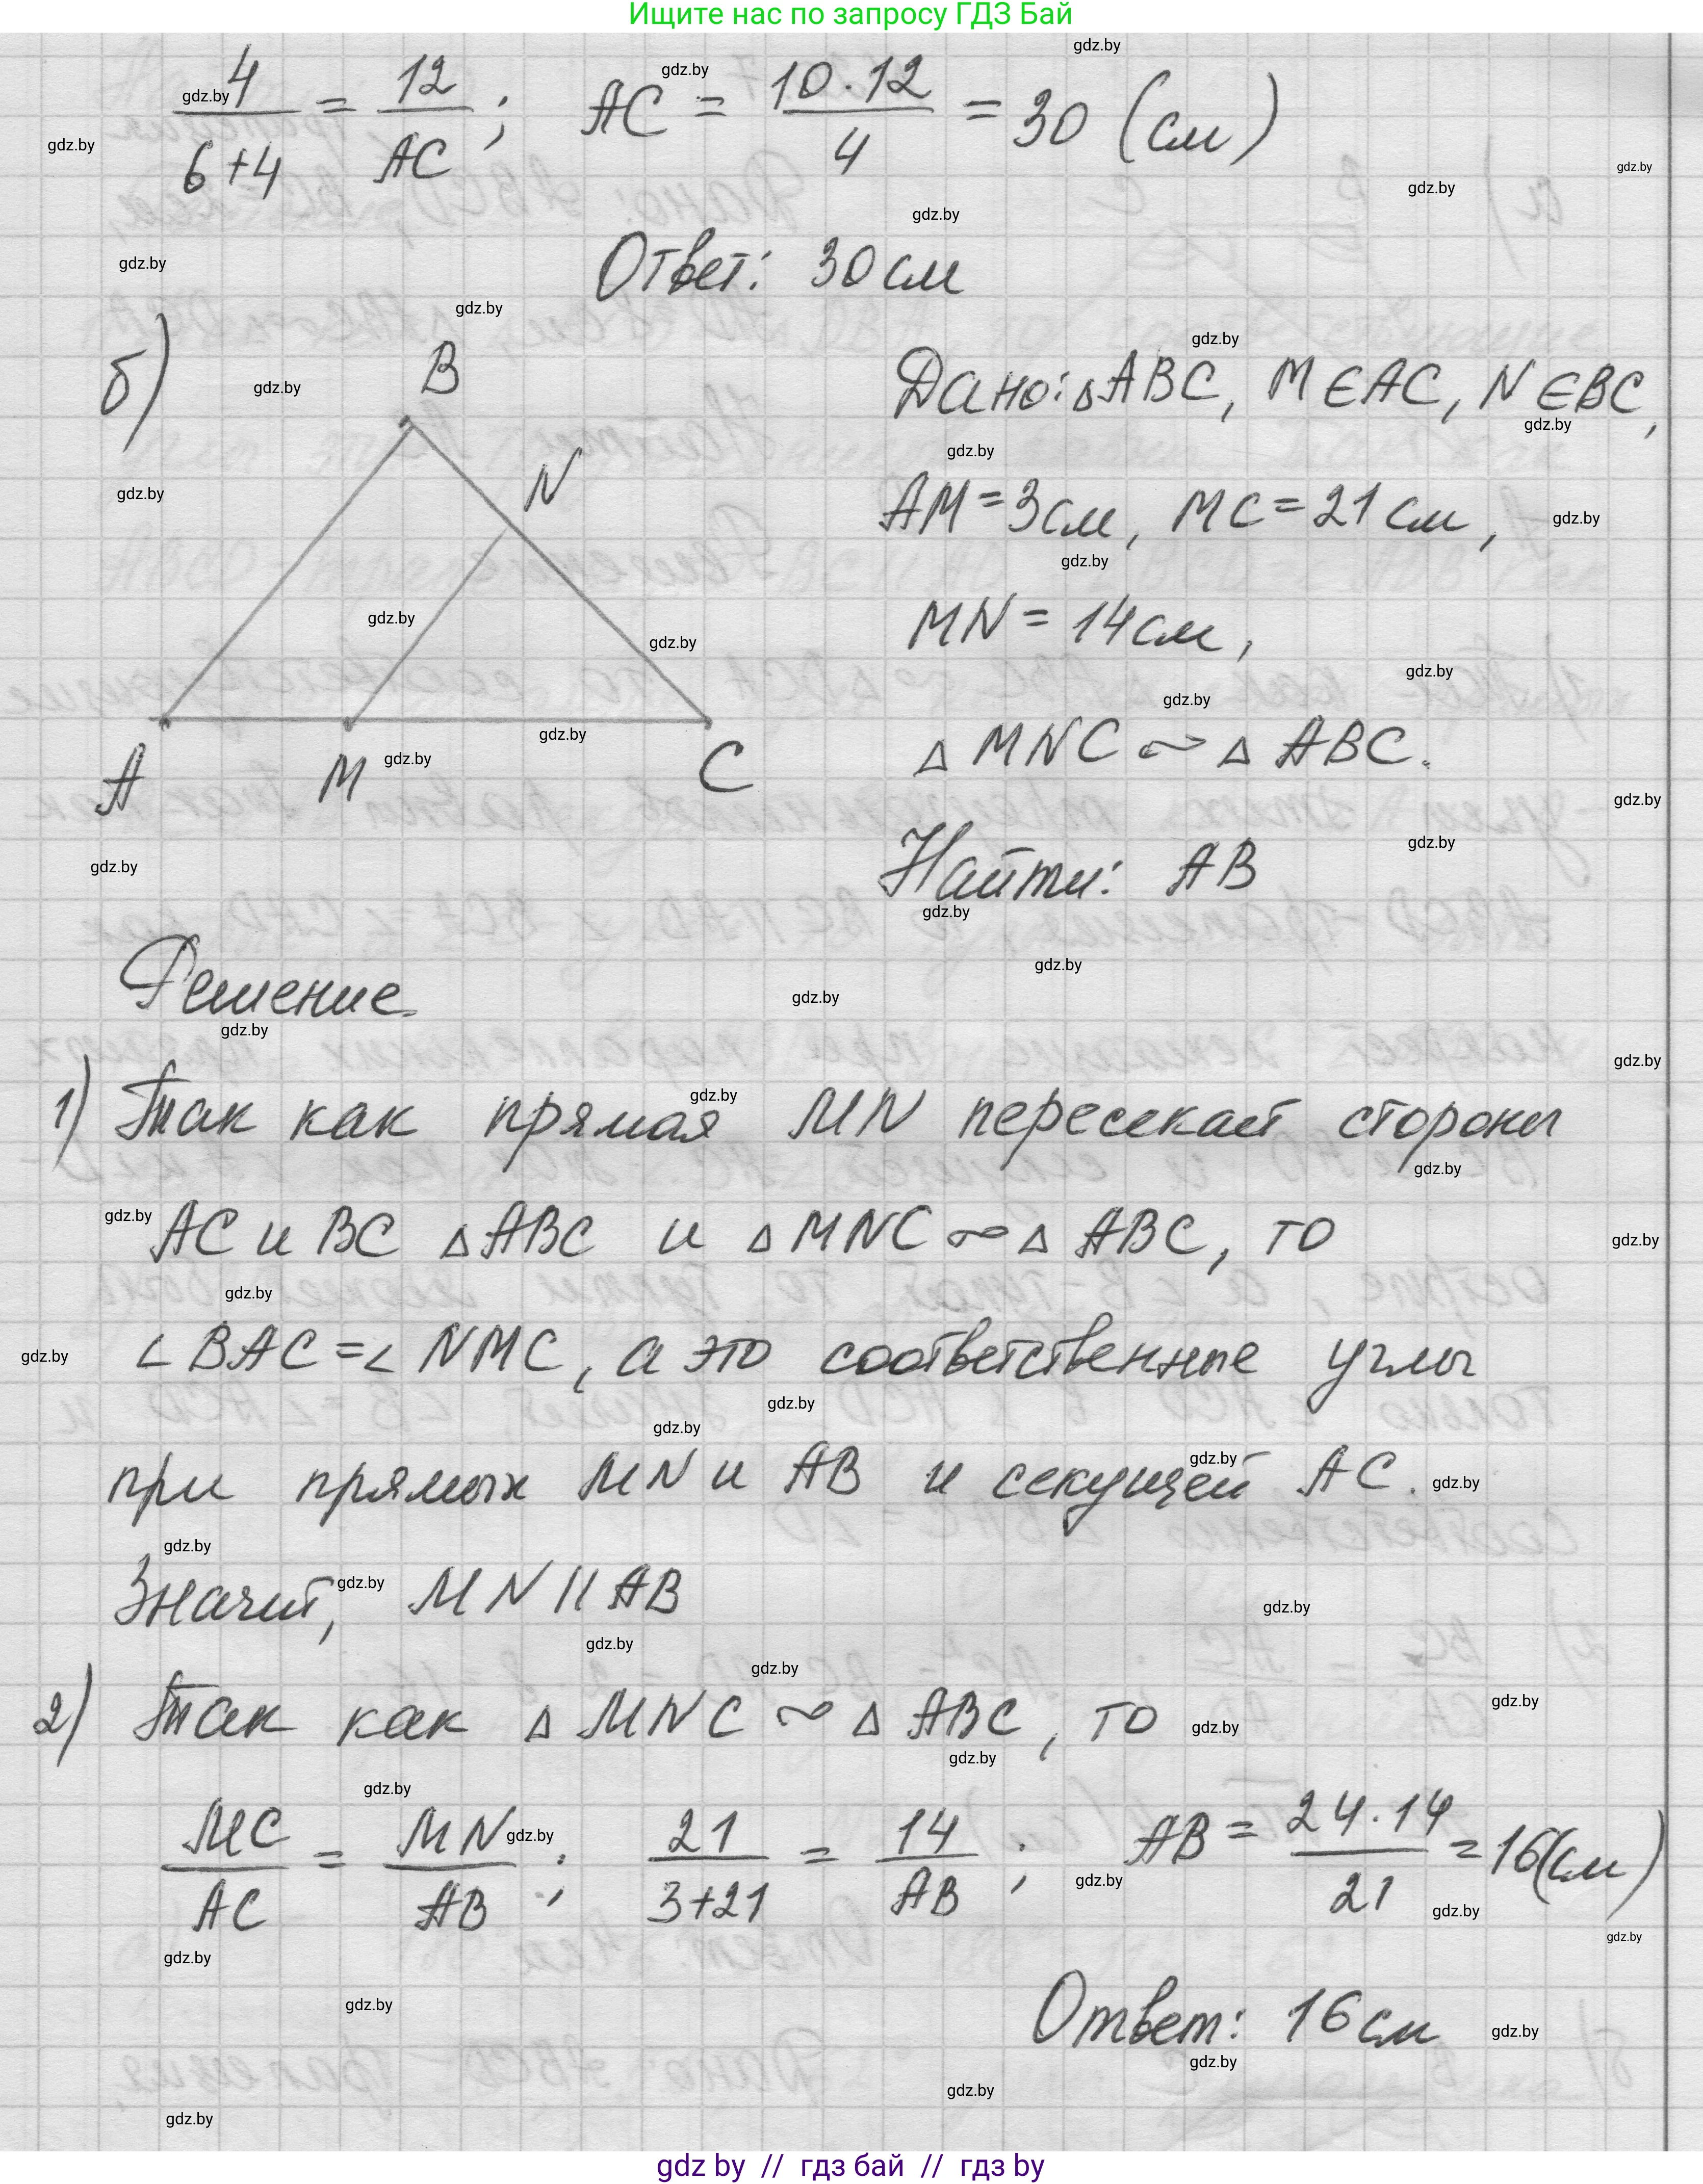 Ищите нас по запросу ГДЗ Бай
4/(6+4) = 12/AC; AC = 10·12/4 = 30 (см)
Ответ: 30 см
б)
B
N
A
M
C
Дано: △ABC, M∈AC, N∈BC,
AM = 3 см, MC = 21 см,
MN = 14 см,
△ MNC ∾ △ ABC.
Найти: AB
Решение.
1) Так как прямая MN пересекает стороны
AC и BC △ABC и △MNC ∾ △ ABC, то
∠BAC = ∠NMC, а это соответственные углы
при прямых MN и AB и секущей AC.
Значит, MN || AB
2) Так как △ MNC ∾ △ ABC, то
MC/AC = MN/AB; 21/(3+21) = 14/AB; AB = 24·14/21 = 16(см)
Ответ: 16 см
gdz by // гдз бай // гдз by